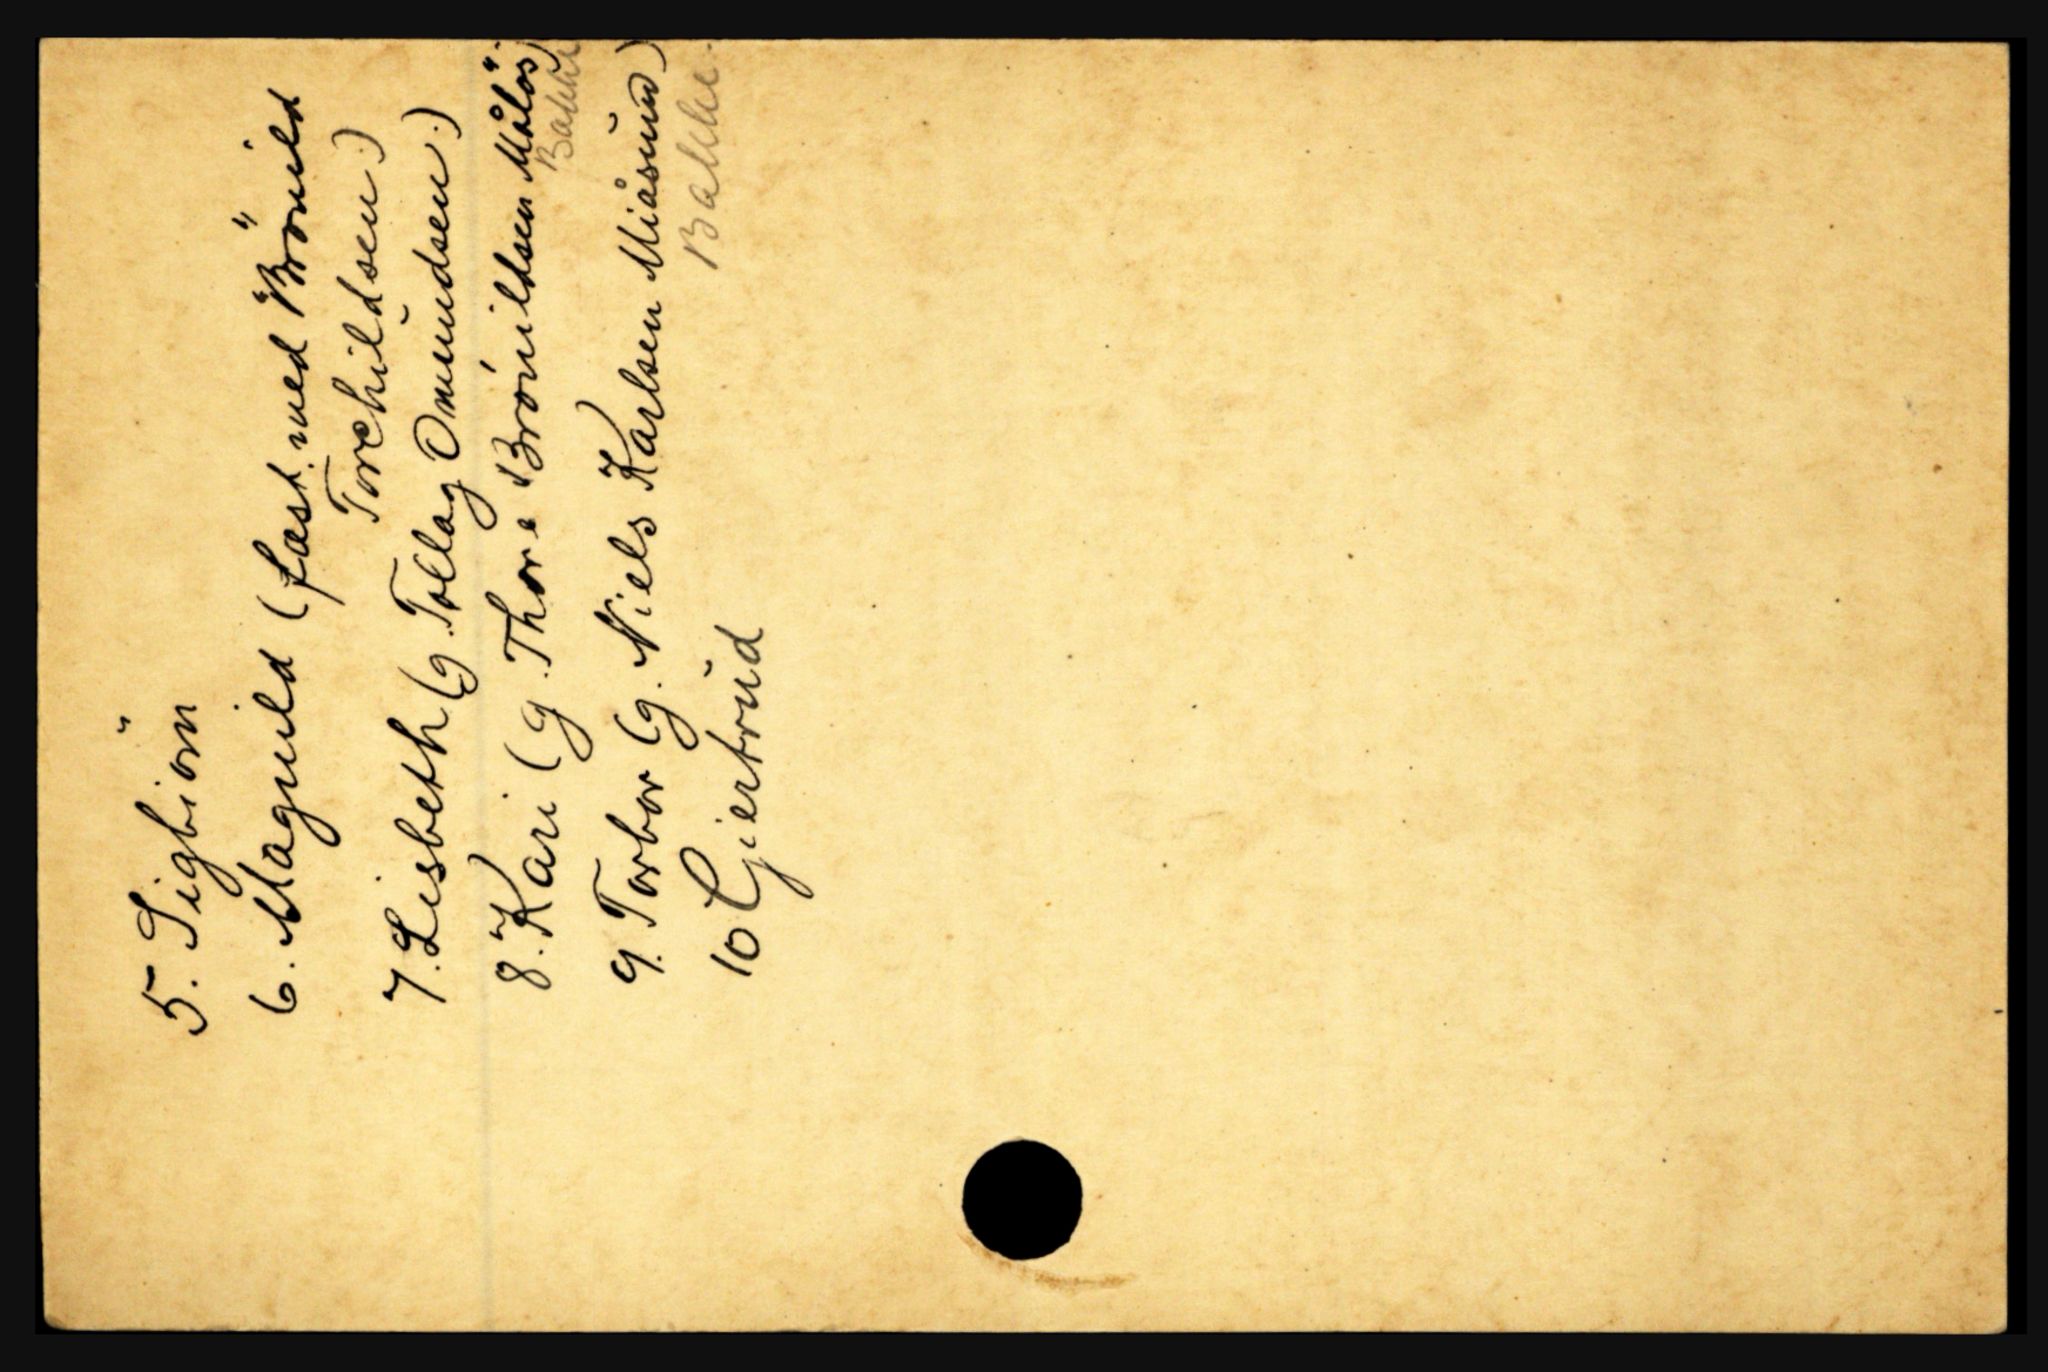 5. Sigbiörn
6. Magnild (fæst. med "Brönild"
Torchildsen.)
7. Lisbeth (g. Tollag Omundsen.)
8. Kari (g. Thore Brönildsen Målös)
Bakke
9. Torbor (g. Niels Karlsen Miåsund)
Bakke.
10 Gjertrud